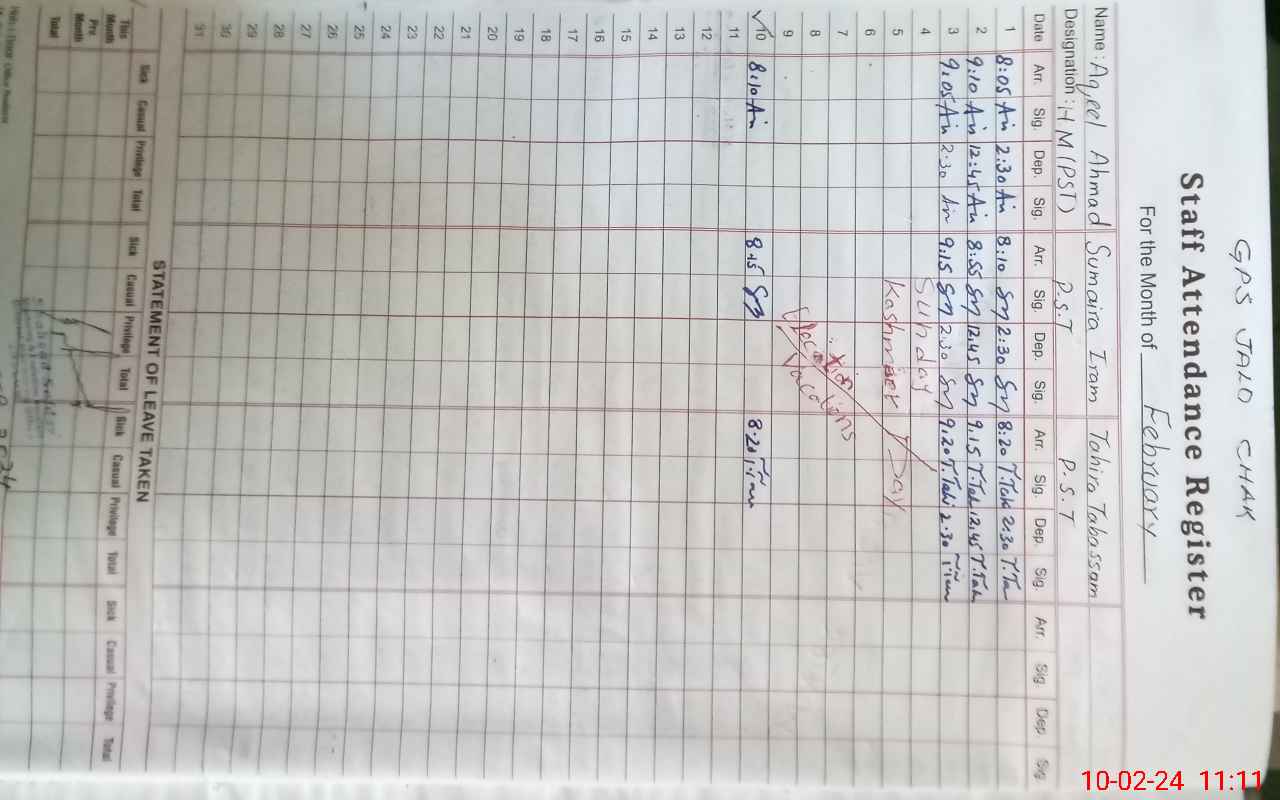 GPS JALO CHAK
Staff Attendance Register
For the Month of February
Name: Aqeel Ahmad Sumaira Iram Tahira Tabassam
Designation: H.M(PST) P.S.T P.S.T
Date Arr. Sig. Dep. Sig. Arr. Sig. Dep. Sig. Arr. Sig. Dep. Sig. Arr. Sig. Dep Sig
1 8:05 2:30 8:10 2:30 8:20 2:30
2 9:10 12:45 8:55 12.45 9.15 12.45
3 9.05 2:30 9.15 2:30 9.20 2.30
4 Sunday
5 Kashmeer Day
6
7
8
9
10 8:10 8.15 8.20
11
12
13
14
15
16
17
18
19
20
21
22
23
24
25
26
27
28
29
30
31
STATEMENT OF LEAVE TAKEN
Sick Casual Privilege Total Sick Casual Privilege Total Sick Casual Privilege Total Sick Casual Privilege Total
This Month
Pre. Month
Total
10-02-24 11:11